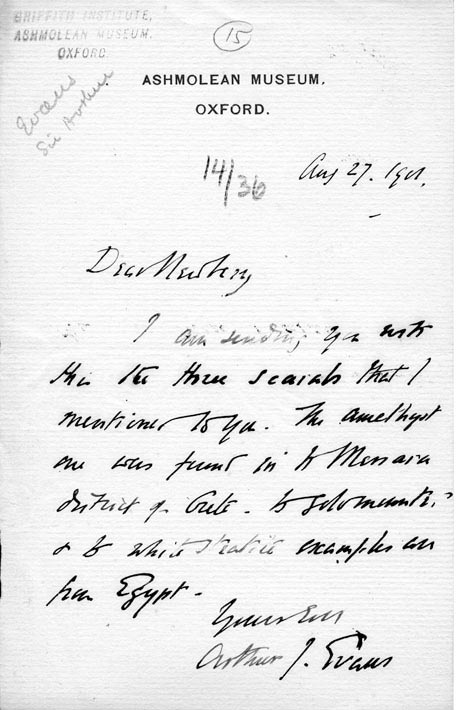 GRIFFITH INSTITUTE,
ASHMOLEAN MUSEUM.
OXFORD
15
Evans
Sir Arthur
ASHMOLEAN MUSEUM,
OXFORD.
14/36
Aug 27. 1901.
Dear Newberry
I am sending you with
this the three scarabs that I
mentioned to you. The amethyst
one was found in the Messara
district of Crete. the
& the white steatite examples are
from Egypt.
Yours Ever
Arthur J. Evans